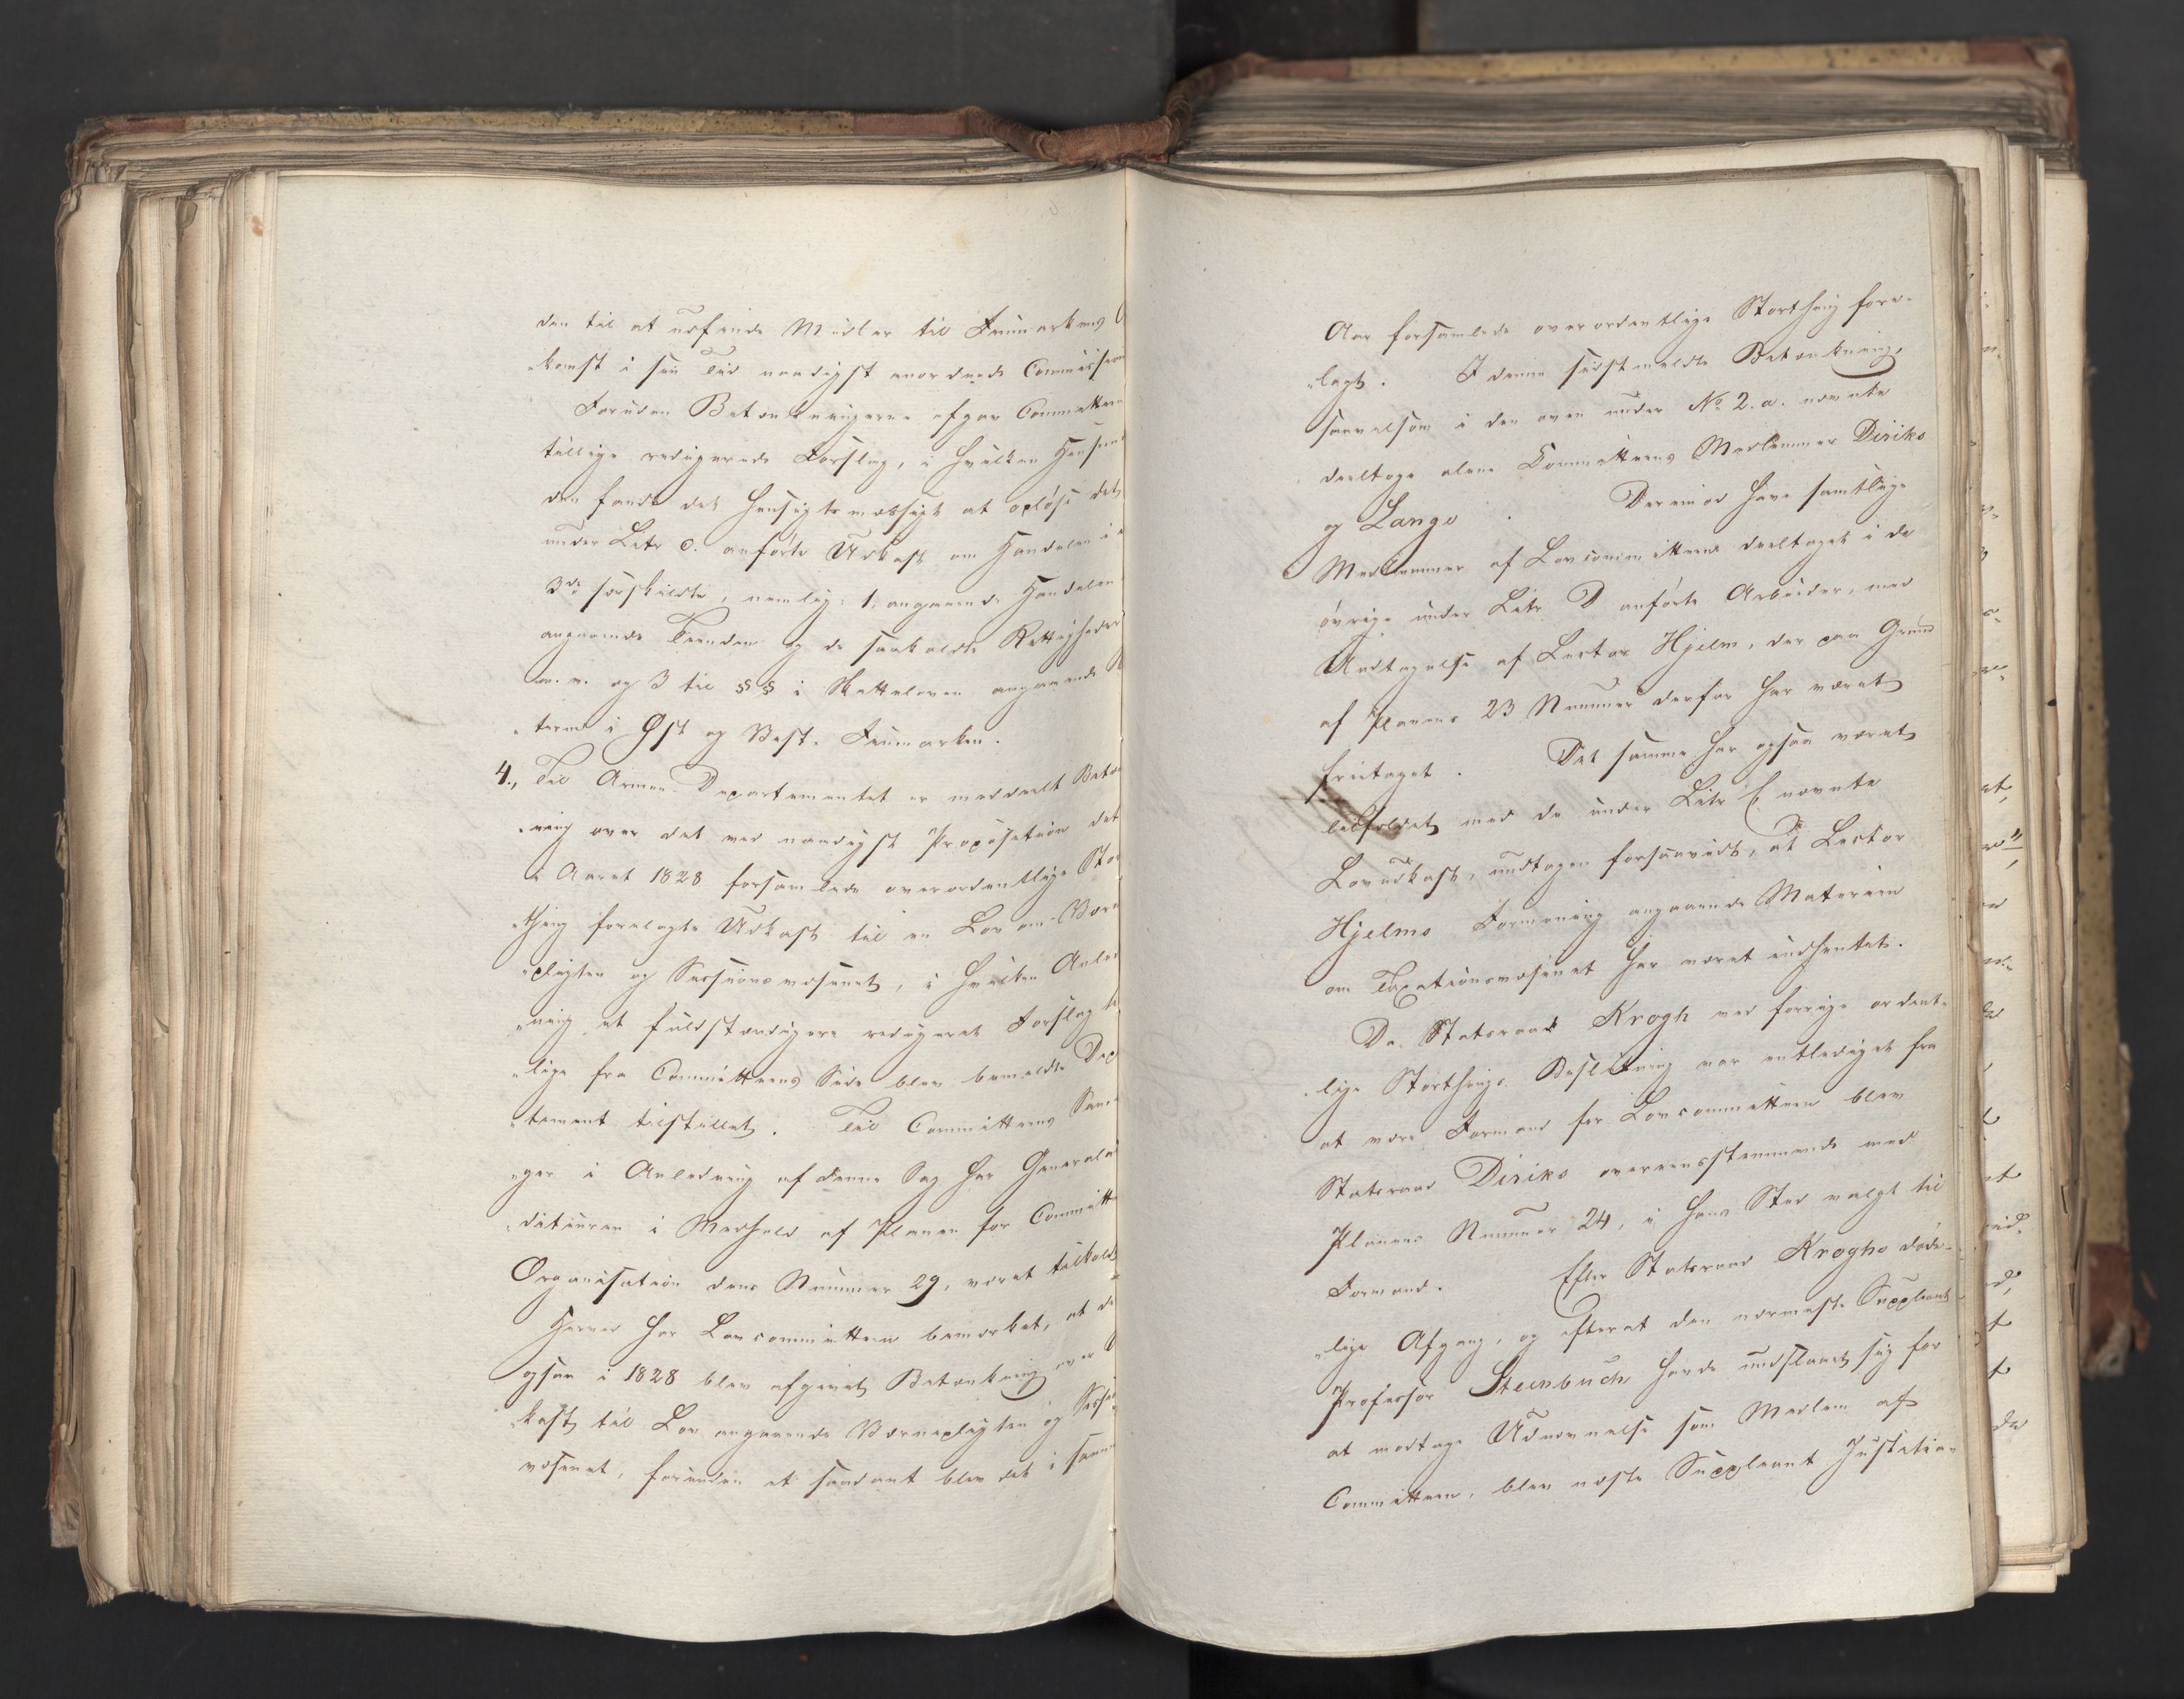 den til at udfinde Midler til Finmarkens
-komst i sin Tid naadigst anordnede Commission
Foruden Betænkningerne afgav Committeen
tillige redigerede Forslag, i hvilken Henseende
den fandt det hensigtsmæssigt at opløse det
under Litr c. anførte Udkast om Handelen i
3de særskildte, nemlig: 1, angaaende Handelen
angaaende Tienden og de saakaldte Rettigheder
m. v. og 3 til §§ i Skatteloven angaaende
-terne i Øst og Vest-Finmarken.
4., Til Armee-Departementet er meddeelt Betæn
-ning over det ved naadigst Proposition det
i Aaret 1828 forsamlede overordentlige Stor
-thing forelagte Udkast til en Lov om Værne
-pligten og Sessionsvæsenet, i hvilken Anled
-ning et fuldstændigere redigeret Forslag
-lige fra Committeens Side blev bemeldte Dep
-tement tilstillet. Til Committeens Sam
-ger i Anledning af denne Sag har Generala
-diteuren i Medhold af Planen for Committ
Organisation dens Nummer 29, været tilkaldt
Herved har Lovcommitteen bemærket, at de
ogsaa i 1828 blev afgivet Betænkning over
-kast til Lov angaaende Værnepligten og Sess
væsenet, forinden et saadant blev det i samme
Aar forsamlede overordentlige Storthing fore-
-lagt. I denne sidstmeldte Betænkning,
saavelsom i den oven under No 2. a. nævnte
deeltoge alene Committeens Medlemmer Diriks
og Lange. Derimod have samtlige
Medlemmer af Lovcommitteen deeltaget i de
øvrige under Litr D anførte Arbeider, med
Undtagelse af Lector Hjelm, der paa Grund
af Planens 23 Nummer derfor har været
fritaget. Det samme har ogsaa været
Tilfældet med de under Litr E nævnte
Lovudkast, undtagen forsaavidt, at Lector
Hjelms Formening angaaende Materien
om Taxationsvæsenet har været indhentet.
Da Statsraad Krogh ved forrige ordent-
-lige Storthings Beslutning var entlediget fra
at være Formand for Lovcommitteen blev
Statsraad Diriks overeensstemmende med
Planens Nummer 24, i hans Sted valgt til
Formand. Efter Statsraad Kroghs døde-
-lige Afgang, og efterat den nærmeste Suppleant
Professor Steenbuch havde undslaaet sig for
at modtage Udnævnelse som Medlem af
Committeen, blev næste Suppleant Justitia-